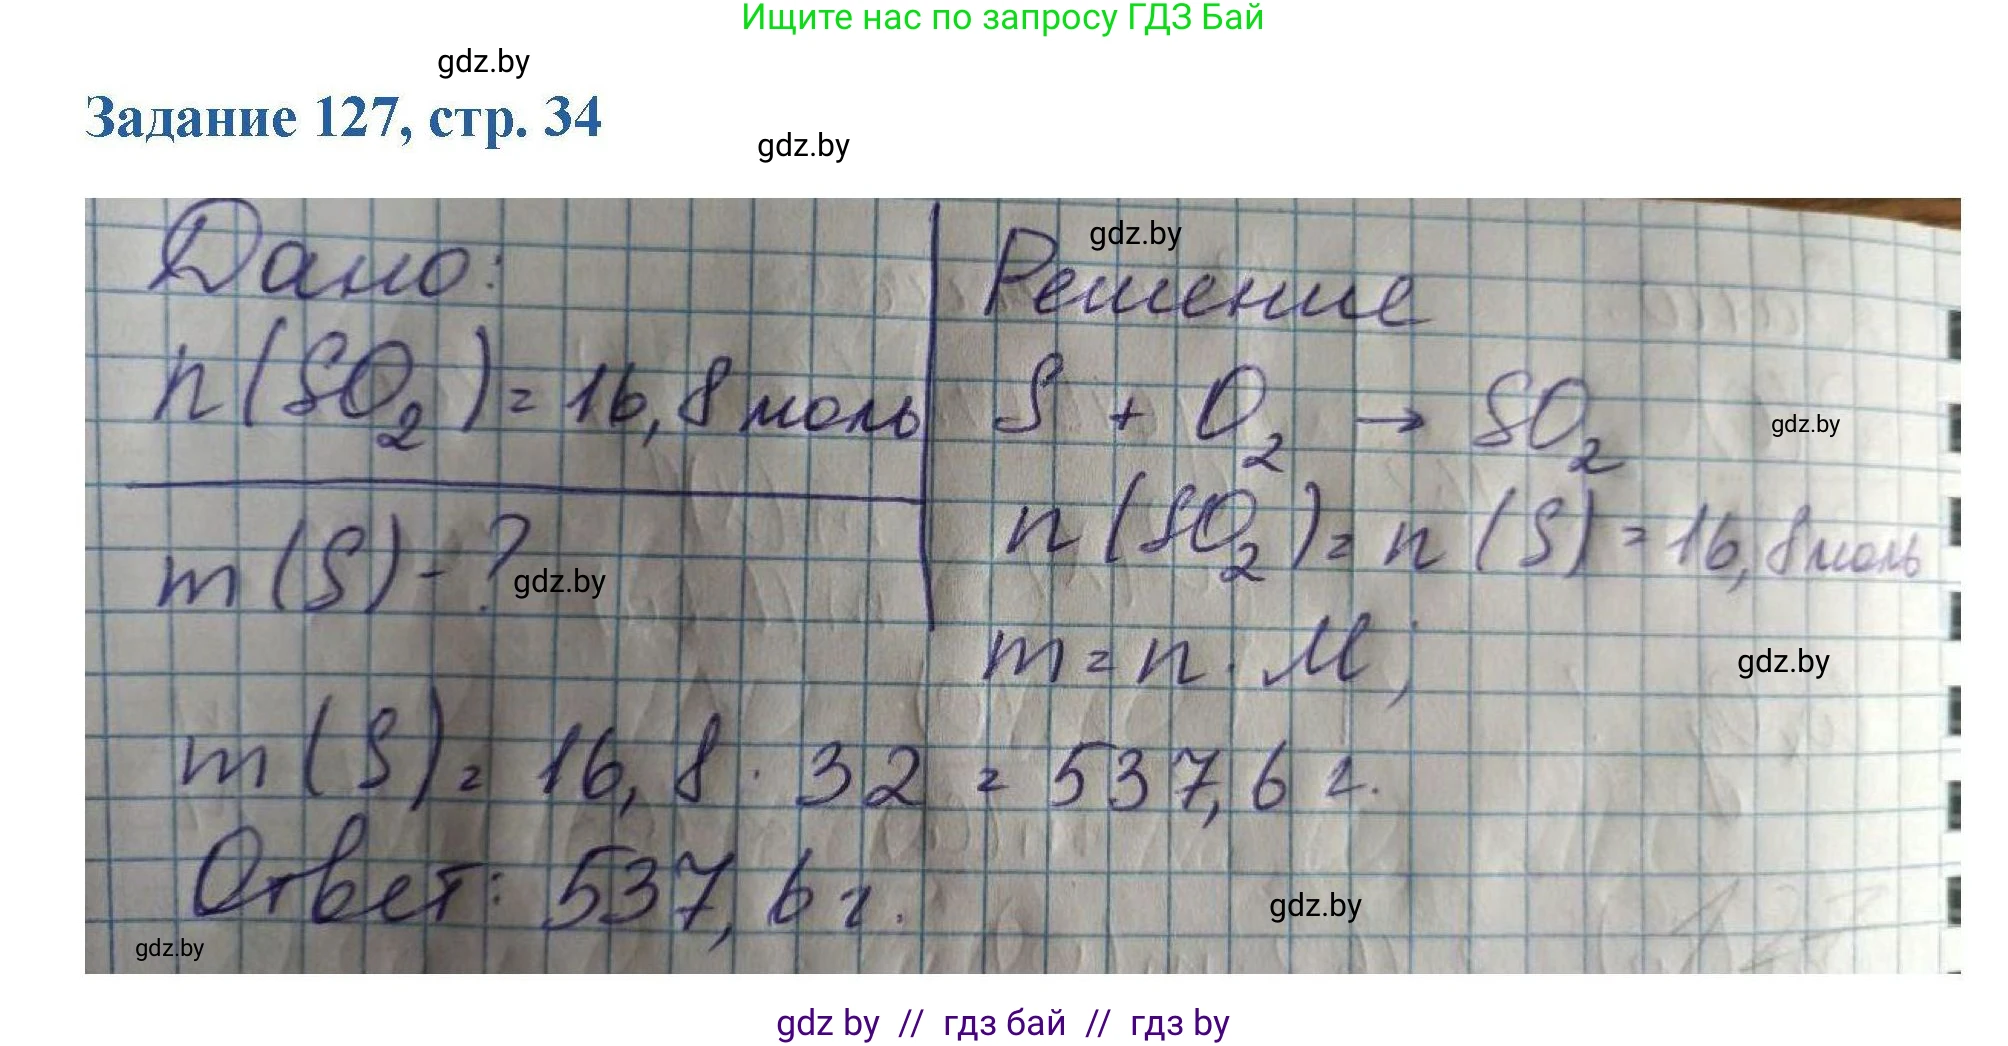 Ищите нас по запросу ГДЗ Бай
gdz.by
Задание 127, стр. 34
gdz.by
Дано:
n(SO₂) = 16,8 моль
m(S) - ?
gdz.by
gdz.by
Решение
S + O₂ → SO₂
gdz.by
n(SO₂) = n(S) = 16,8 моль
m = n · M;
gdz.by
m(S) = 16,8 · 32 = 537,6 г.
Ответ: 537,6 г.
gdz.by
gdz.by
127
gdz by // гдз бай // гдз by